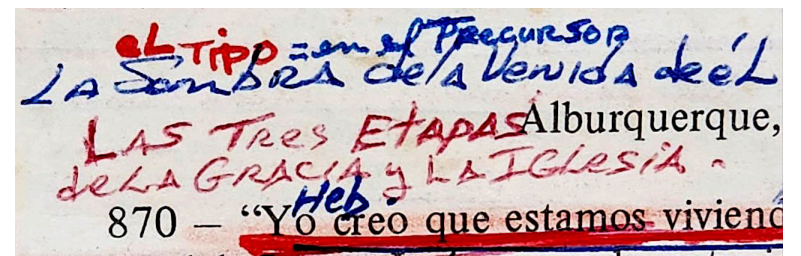 el Tipo = en el Precursor
La Sombra de la Venida de él
Las Tres Etapas
Alburquerque,
de la Gracia y La Iglesia.
Heb.
870 – “Yo creo que estamos viviend